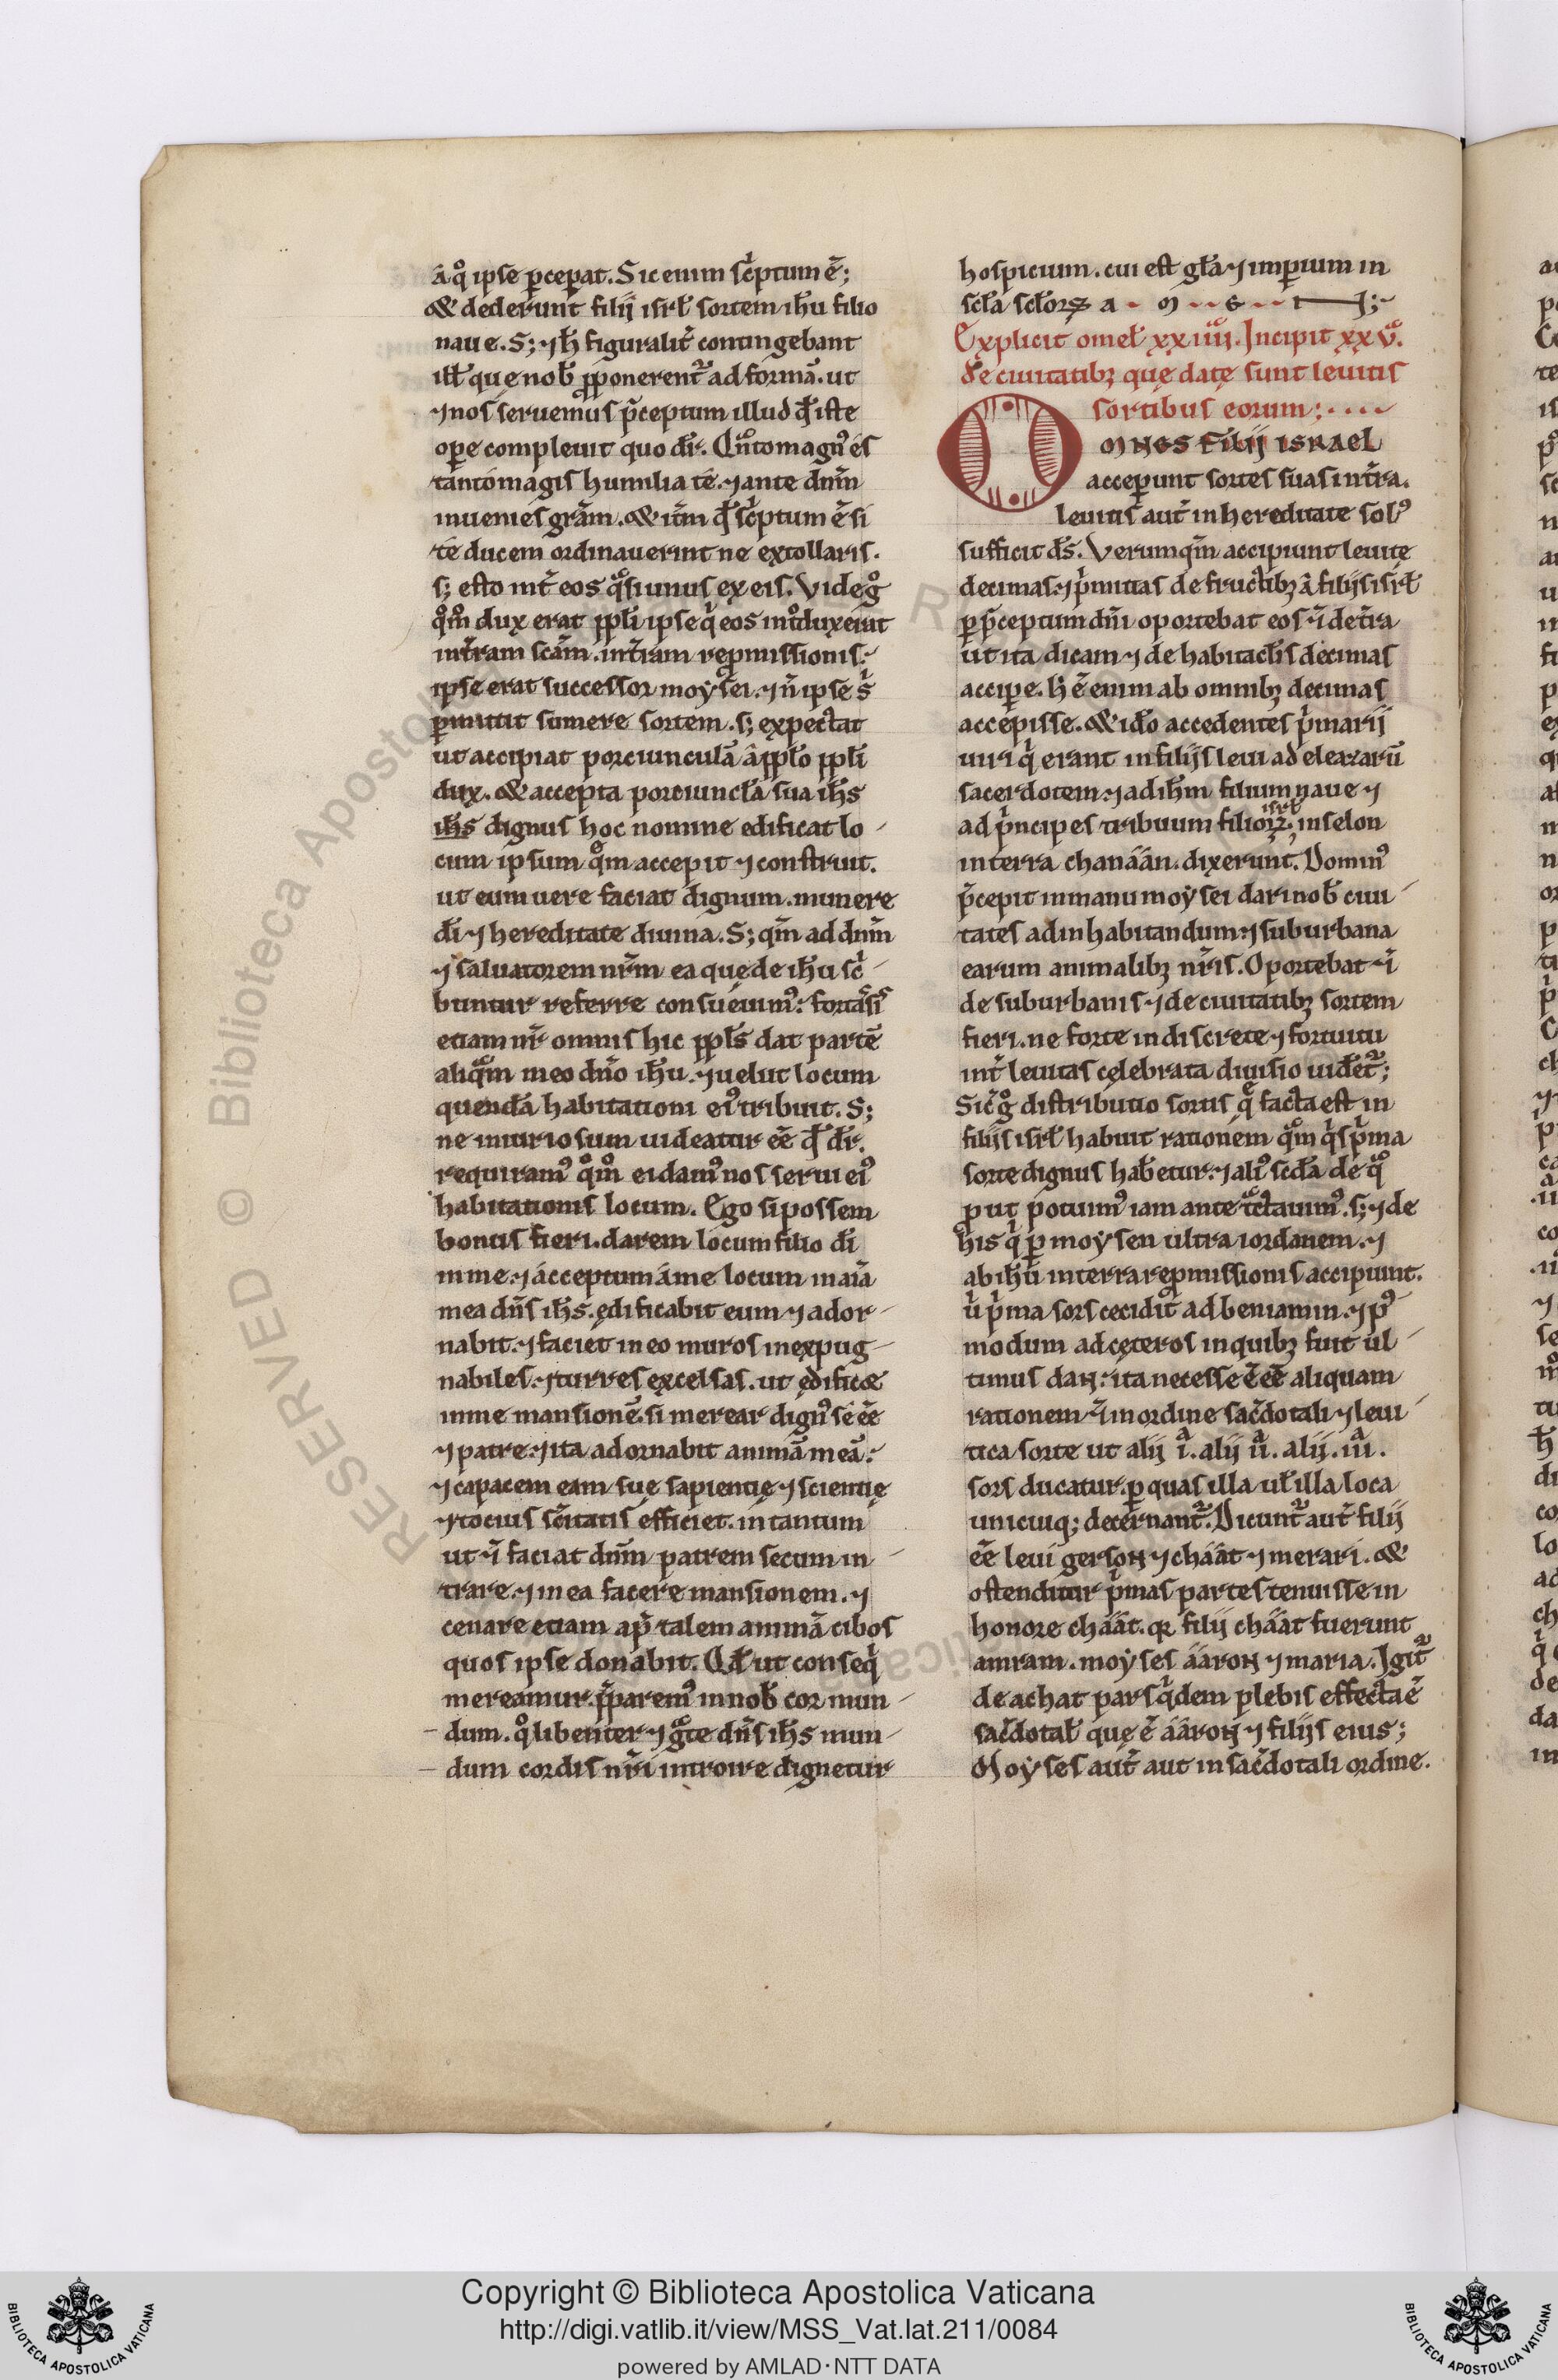 a q̊ ipse p̱cep̱at. Sic enim sc̓ptum ē;
& dederunt filij isrł sortem ih̄u filio
naue. S; ⁊ h̄ figuralit̓ contingebant
ilł que nob̄ ꝓponerent̓ ad formā. ut
⁊ nos seruemus p̄ceptum illud qđ iste
ope compleuit quo dr̄. Qn̊to magn᾿ es
tanto magis humilia te. ⁊ ante dn̄m
inuenies grām. & itm̄ qđ sc̓ptum ē si
te ducem ordinauerint ne extollaris.
s; esto int̓ eos q̊si unus ex eis. Vide g̊
q̊m̊ dux erat ppłi ipse q̓ eos int̊duxerat
in t̓ram scām. in t̓ram rep̱missionis.
ipse erat successor moẏsei. ⁊ n̄ ipse s̓
p̱mittit sumere sortem. s; expectat
ut accipiat porciunculā a ppło ppłi
dux. & accepta porciuncła sua ih̄s
ih̄s dignus hoc nomine edificat lo-
cum ipsum q̊m accepit ⁊ construit.
ut eum uere faciat dignum. munere
di̅ ⁊ hereditate diuina. S; qm̄ ad dnm̄
⁊ saluatorem nr̄m ea quę de ih̄u sc̓-
buntur referre consueuim᾿. fortassis
etiam nr̄ omnis hic ppłs dat partē
aliq̊m meo dn̄o ih̄u. ⁊ uelut locum
quendā habitationi ei᾿ tribuit. S;
ne iniuriosum uideatur eē qđ dr̄.
requiram᾿ q̊m̊ ei dam᾿ nos serui ei᾿
habitationis locum. Ego si possem
bonus fieri. darem locum filio di̅
in me. ⁊ acceptum a me locum in aīa
mea dn̄s ih̄s. ędificabit eum ⁊ ador-
nabit. ⁊ faciet in eo muros inexpug-
nabiles. ⁊ turres excelsas. ut ędificæ
in me mansionē. si merear dign᾿ se eē
⁊ patre. ⁊ ita adornabit animā meā.
⁊ capacem eam suę sapientię ⁊ scientię
⁊ tocius sc̄itatis efficiet. in tantum
ut ⁊̓ faciat dn̄m patrem secum in-
trare. ⁊ in ea facere mansionem. ⁊
cenare etiam ap̓ talem animā cibos
quos ipse donabit. Qđ ut conseq̓
mereamur. p̄parem᾿ in nob̄ cor mun-
dum. q̊ libenter ⁊ g̊te dn̄s ih̄s mun-
dum cordis nr̄i introire dignetur
hospicium. cui est głā ⁊ imp̱ium in
scła scłorꝝ a · m · · e · · n;
Explicit omeł xxiiii. Incipit xxv̊.
de ciuitatibꝫ quę datę sunt leuitis
sortibus eorum; · · · ·
OMNES filij ISRAEL
accep̱unt sortes suas in t̓ra.
leuitis aut̓ in hereditate sol᾿
sufficit ds̄. Verum qm̄ accipiunt leuite
decimas ⁊ p̓mitias de fructibꝫ a filijs isrł
p̱ p̄ceptum dn̄i oportebat eos ⁊̓ de t̓ra
ut ita dicam ⁊ de habitacłis decimas
accipe. h̄ ē enim ab omnibꝫ decimas
accepisse. & iđo accedentes p̓marij
uiri q̓ erant in filijs leui ad eleazarū
sacerdotem ⁊ ad ih̄m filium naue ⁊
ad p̓ncipes tribuum filiorꝝ isrł. in selon
in terra chanáán. dixerunt. Domin᾿
p̄cepit in manu moẏsei dari nob̄ ciui-
tates ad inhabitandum ⁊ suburbana
earum animalibꝫ nr̄is. Oportebat ⁊̓
de suburbanis ⁊ de ciuitatibꝫ sortem
fieri. ne forte indiscrete ⁊ fortuitu
int̓ leuitas cęlebrata diuisio uidet̓;
Sic g̊ distributio sortis q̄ facta est in
filijs isrł habuit rationem q̊m q̓s p̓ma
sorte dignus habetur. ⁊ ali᾿ scđa de q̊
put potuim᾿ iam ante t̊ctauim᾿. s; ⁊ de
his q̓ p̱ moẏsen ultra iordanem. ⁊
ab ih̄u in terra rep̱missionis accipiunt.
u̓ p̓ma sors cecidit ad beniamin. ⁊ p᾿-
modum ad cęteros in quibꝫ fuit ul-
timus dan. ita necesse ē eē aliquam
rationem ⁊̓ in ordine sac̓dotali ⁊ leui-
tica sorte ut alij i̊. alij ii̊. alij. iii̊.
sors ducatur. p̱ quas illa uł illa loca
unicuiq; decernant̓. Dicunt̓ aut̓ filij
eē leui gerson ⁊ cháát ⁊ merari. &
ostenditur p̓mas partes tenuisse in
honore cháát. qr filij cháát fuerunt
amram. moẏses ááron ⁊ maria. Igit̓
de achat pars q̓dem plebis effecta ē
sac̓dotał quę ē ááron ⁊ filijs eius;
Moẏses aut̓ aut in sac̓dotali ordine.
Copyright © Biblioteca Apostolica Vaticana
http://digi.vatlib.it/view/MSS_Vat.lat.211/0084
powered by AMLAD·NTT DATA
BIBLIOTECA APOSTOLICA VATICANA
BIBLIOTECA APOSTOLICA VATICANA